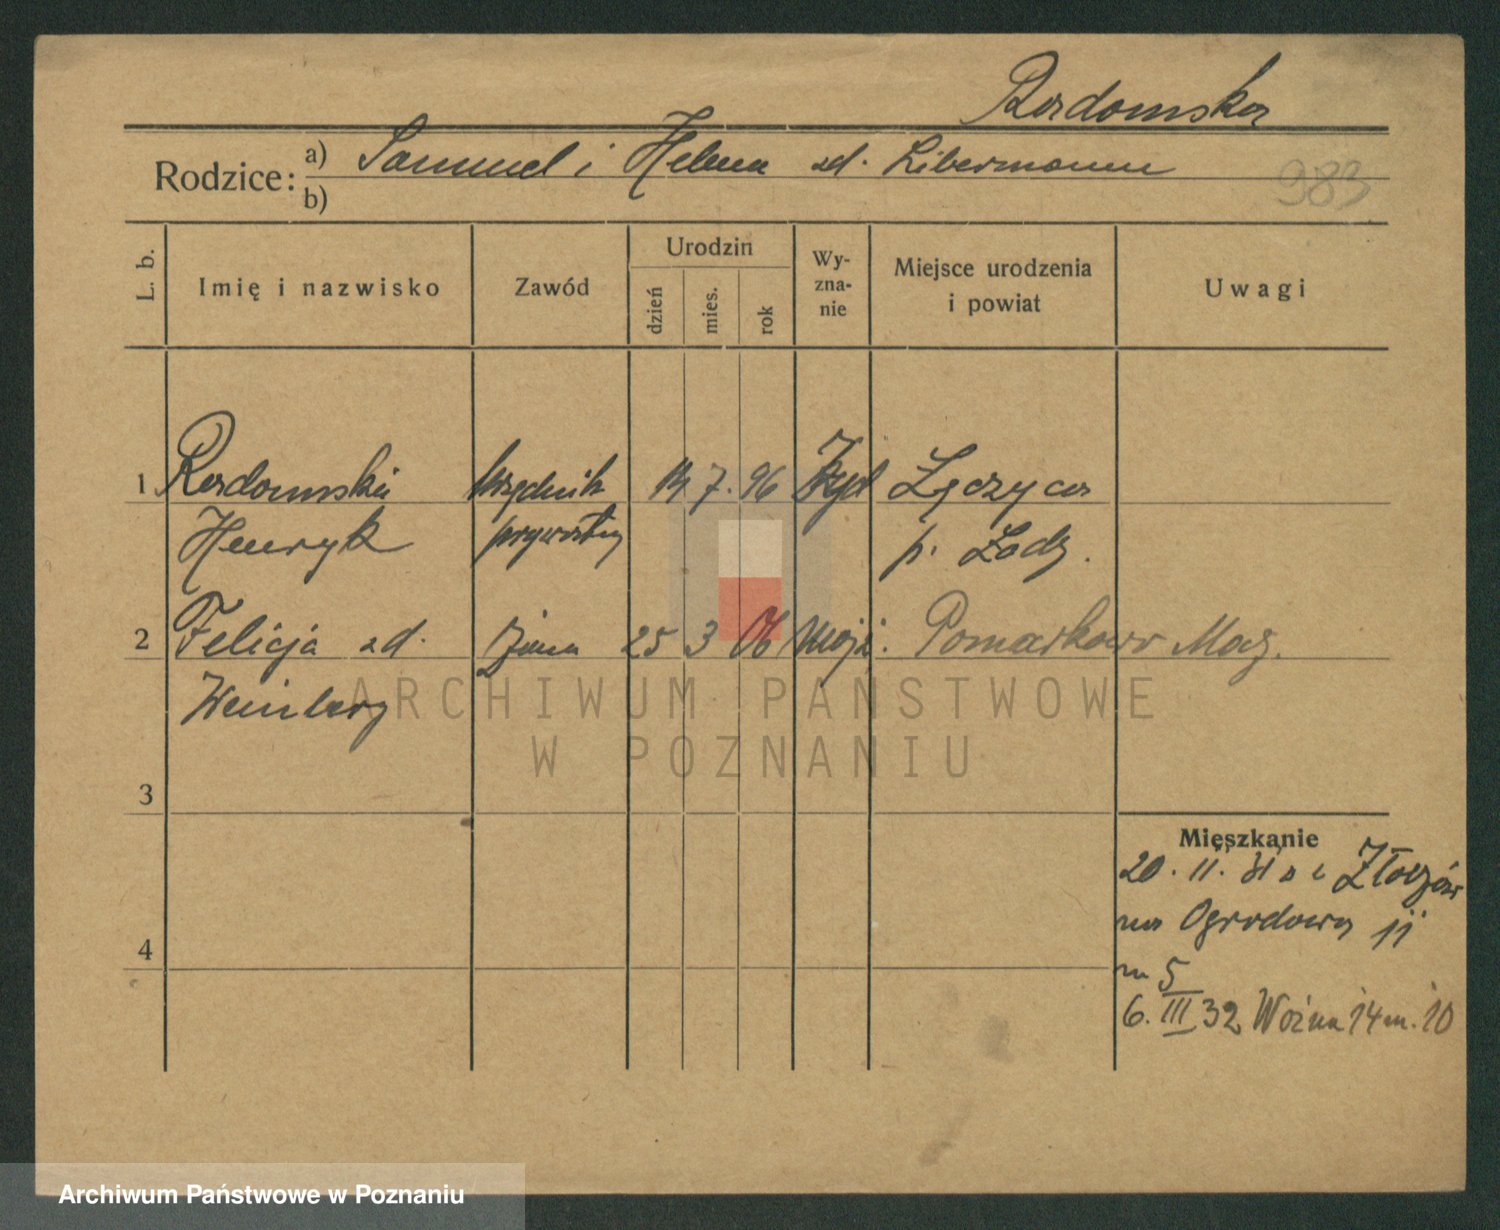 Radomska
Rodzice: a) Samuel i Helena zd. Libermann
b)
983
L. b. Imię i nazwisko Zawód Urodzin dzień mies. rok Wy-zna-nie Miejsce urodzenia i powiat Uwagi
1 Radomski urzędnik 14 7. 96 Żyd Łęczyca
Henryk prywatny p. Łodz.
2 Felicja zd. żona 25 3 06 Mojż. Pomarkowo Maz.
Weinberg
ARCHIWUM PAŃSTWOWE
W POZNANIU
3
Mieszkanie
20. 11. 31 Złoczów
na Ogrodową 11
4
m 5
6. III 32 Woźna 14 m. 10
Archiwum Państwowe w Poznaniu